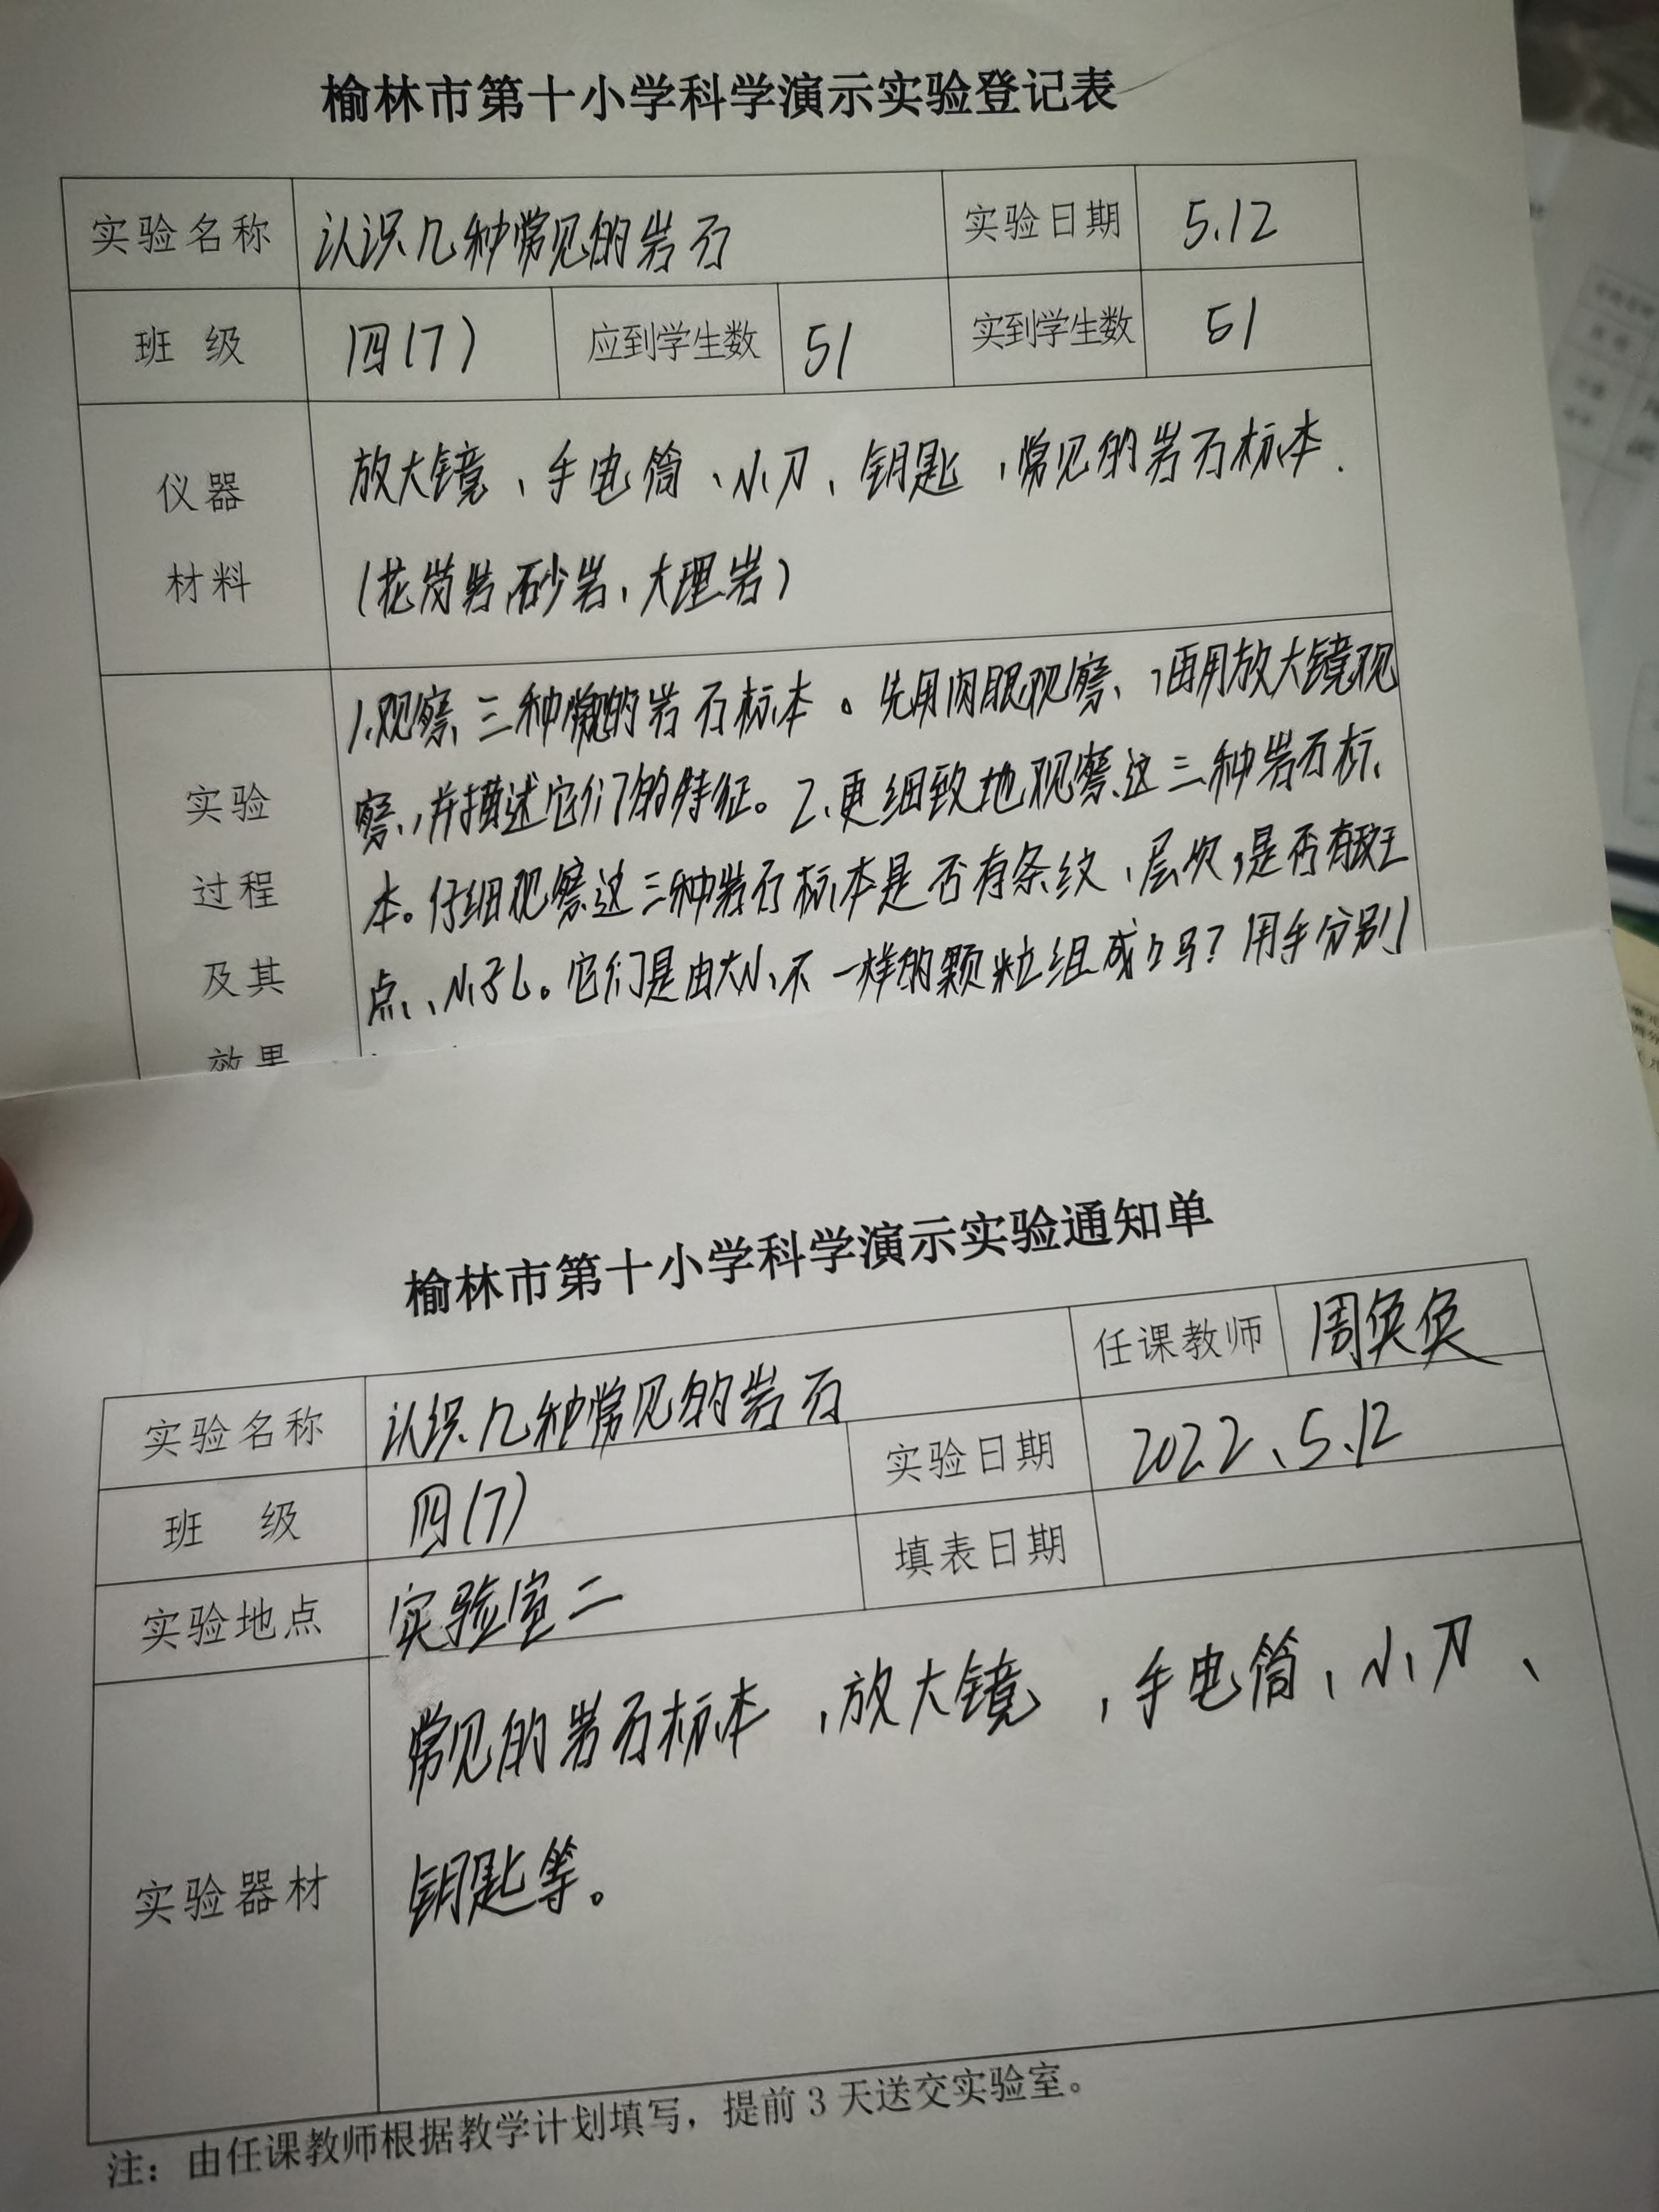 榆林市第十小学科学演示实验登记表
实验名称 认识几种常见的岩石 实验日期 5.12
班 级 四(7) 应到学生数 51 实到学生数 51
仪器 放大镜、手电筒、小刀、钥匙、常见的岩石标本.
材料 (花岗岩,砂岩、大理岩)
1.观察三种常见的岩石标本。先用肉眼观察,再用放大镜观
实验 察,并描述它们的特征。2、更细致地观察这三种岩石标
过程 本。仔细观察这三种岩石标本是否有条纹、层次,是否有斑
及其 点、小孔。它们是由大小不一样的颗粒组成吗?用手分别
效果
榆林市第十小学科学演示实验通知单
实验名称 认识几种常见的岩石 任课教师 周奂奂
班 级 四(7) 实验日期 2022、5.12
实验地点 实验室二 填表日期
常见的岩石标本、放大镜、手电筒、小刀、
实验器材 钥匙等。
注:由任课教师根据教学计划填写,提前3天送交实验室。